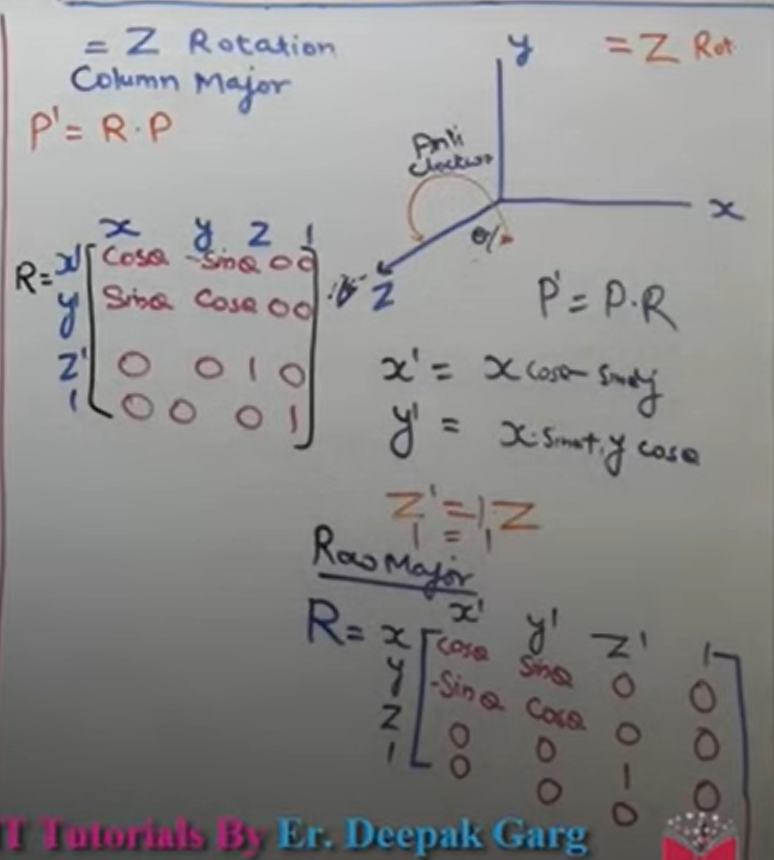 = Z Rotation
Column Major
P' = R.P
y
= Z Rot
Anti
Clockwise
x
θ
Z
x y z 1
R= x' [cosθ -sinθ 0 0
y' Sinθ Cosθ 0 0
z' 0 0 1 0
1 0 0 0 1]
P' = P.R
x' = x cosθ - sinθ y
y' = x.sinθ + y cosθ
Z' = 1.Z
1 = 1
Row Major
x' y' z' 1
R= x [cosθ sinθ 0 0
y -Sinθ Cosθ 0 0
z 0 0 1 0
1 0 0 0
T Tutorials By Er. Deepak Garg